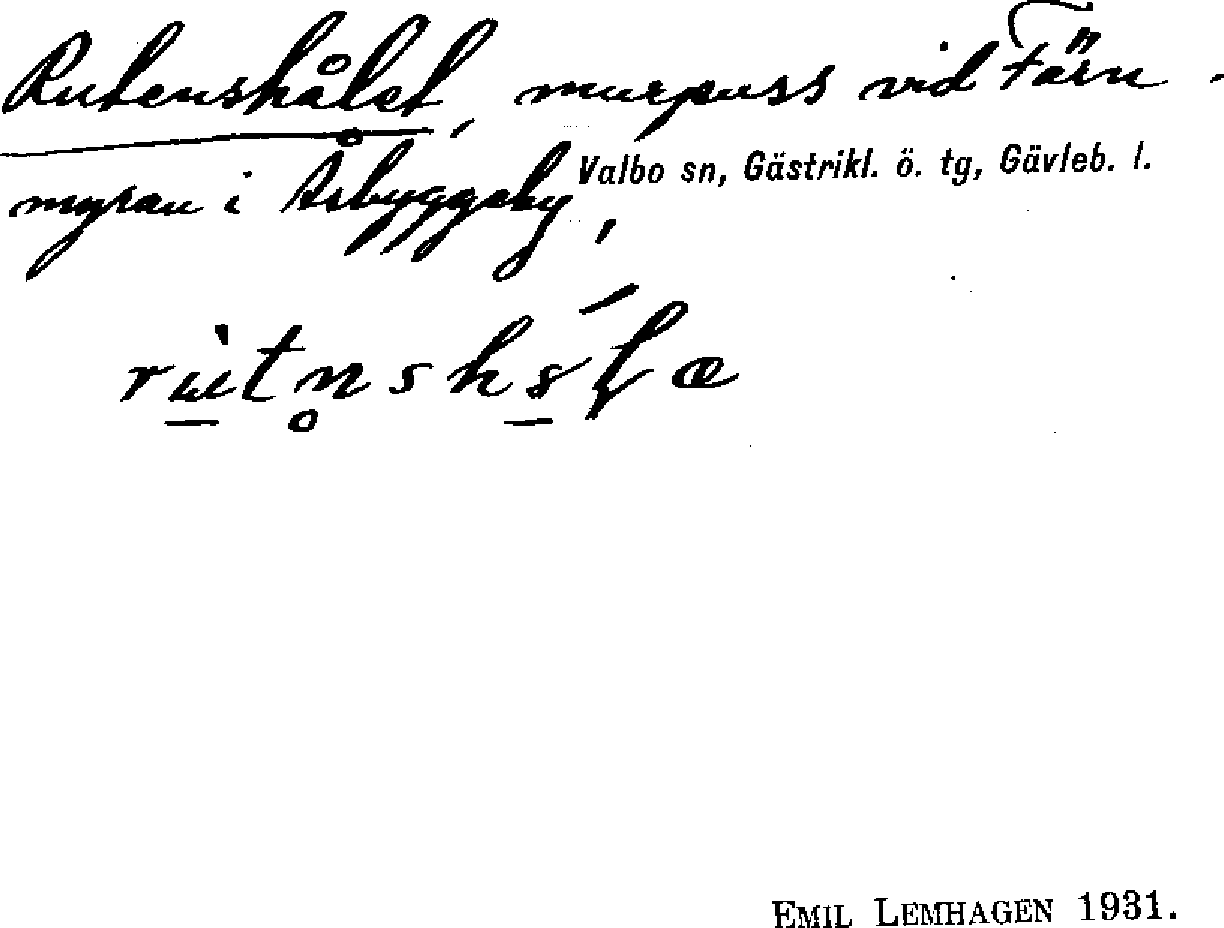 Rutenshålet, murpuss vid Färn-
myran i Åsbyggeby,
Valbo sn, Gästrikl. ö. tg, Gävleb. l.
EMIL LEMHAGEN 1931.